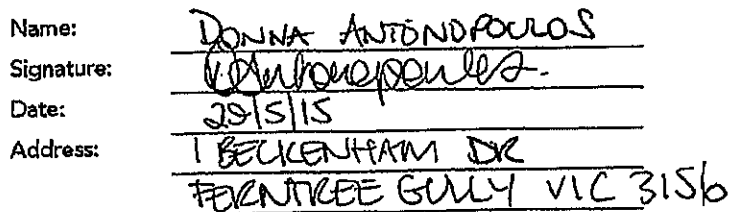 Name: DONNA ANTONOPOULOS
Signature: D. Antonopoulos.
Date: 29/5/15
Address: 1 BECKENHAM DR
FERNTREE GULLY VIC 3156